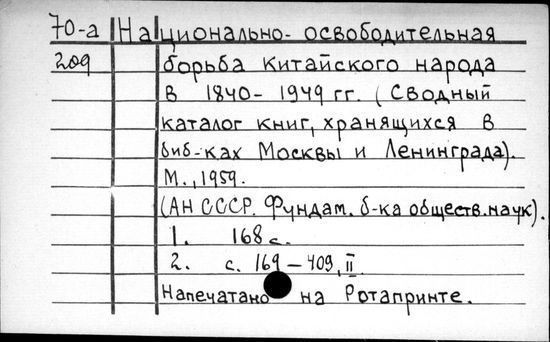 70-а На циoнально-освободительная
209 борьба Китайского народа
в 1840-1949 гг. (Сводный
каталог книг, хранящихся в
биб-ках Москвы и Ленинграда).
М., 1959.
(АН СССР. Фундам. б-ка обществ. наук).
1. 168 с.
2. с. 169-409, II
Напечатано на Ротапринте.